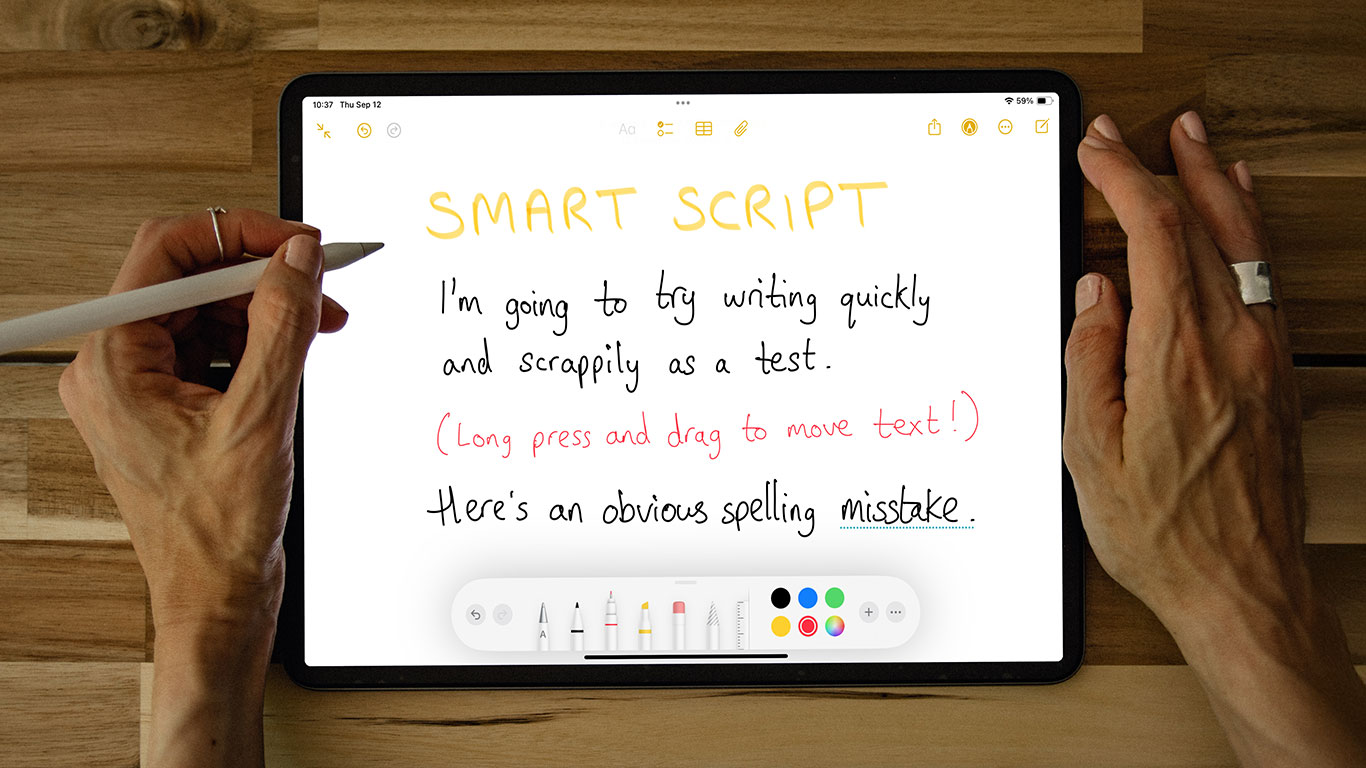 10:37 Thu Sep 12
59%
Aa
SMART SCRIPT
I'm going to try writing quickly
and scrappily as a test.
(Long press and drag to move text!)
Here's an obvious spelling misstake.
A